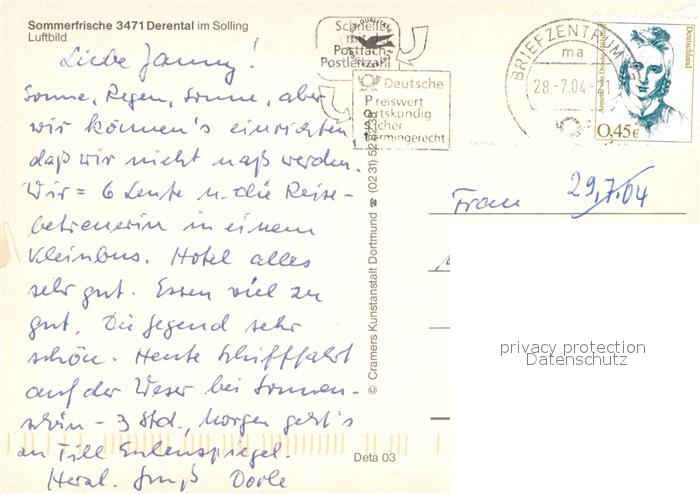 Sommerfrische 3471 Derental im Solling
Luftbild
Liebe Janny!
Sonne, Regen, Sonne, aber
wir können's einrichten,
daß wir nicht naß werden.
Wir = 6 Leute u. die Reise-
betreuerin in einem
Kleinbus. Hotel alles
sehr gut. Essen viel zu
gut. Die Gegend sehr
schön. Heute Schifffahrt
auf der Weser bei Sonnen-
schein - 3 Std., Morgen geht's
an Till Eulenspiegel.
Herzl. Gruß Dorle
© Cramers Kunstanstalt Dortmund ☎ (0231)
Deta 03
Schneller
mit
Postfach
Postleitzahl
Deutsche
Preiswert
Ortskundig
Sicher
Termingerecht
BRIEFZENTRUM
ma
28.-7.04
Deutschland
0,45€
Frau
29.7.04
privacy protection
Datenschutz